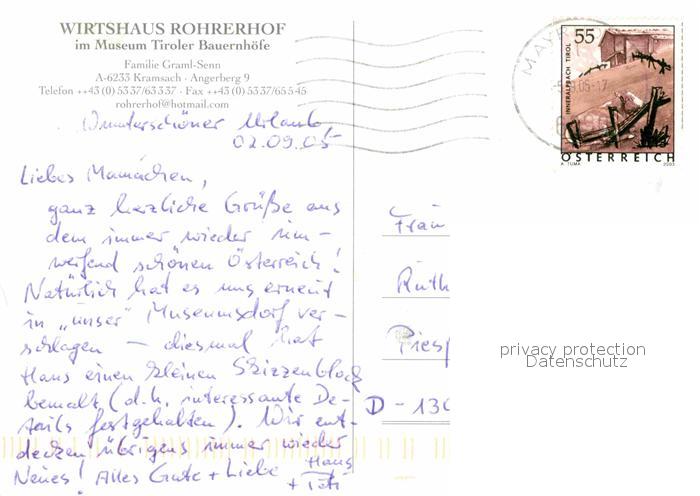 WIRTSHAUS ROHRERHOF
im Museum Tiroler Bauernhöfe
Familie Graml-Senn
A-6233 Kramsach · Angerberg 9
Telefon ++43 (0) 5337/63337 · Fax ++43 (0) 5337/65545
rohrerhof@hotmail.com
Wunderschöner Urlaub
02.09.05
Liebes Mamachen,
ganz herzliche Grüße aus
dem immer wieder um-
werfend schönen Österreich!
Natürlich hat es uns erneut
in „unser" Museumsdorf ver-
schlagen – diesmal hat
Hans einen kleinen Skizzenblock
bemalt (d.h. interessante De-
tails festgehalten). Wir ent-
decken übrigens immer wieder
Neues! Alles Gute + Liebe Hans
+
MAY
55
INNERALPBACH TIROL
ÖSTERREICH
A. TUMA 2003
Frau
Ruth
Pies
D - 130
privacy protection
Datenschutz